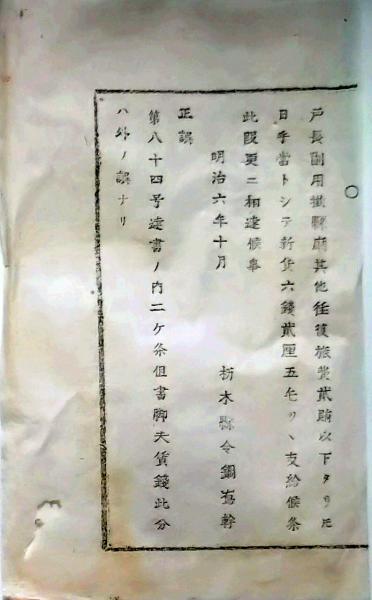 戸長副用掛縣庁其他往復旅費貳賄以下タリ圧
日手當トシテ新貨六錢貳厘五毛ツヽ支給候条
此段更ニ相達候事
明治六年十月
栃木縣令鍋島幹
正誤
第八十四号達書ノ内二ケ条但書脚夫賃錢此分
ハ外ノ誤ナリ